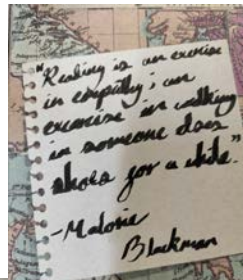 "Reading is an exercise
in empathy; an
exercise in walking
in someone else's
shoes for a while."
-Malorie
Blackman